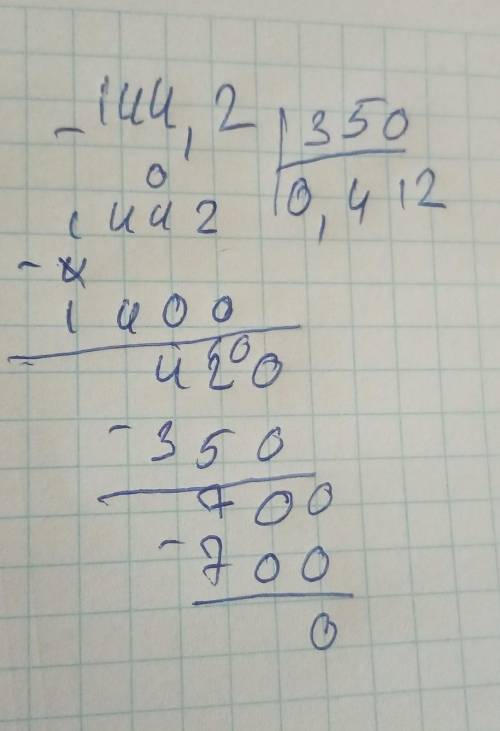 -144,2 | 350
0
1442 | 0,412
-
1400
4200
-350
700
-700
0